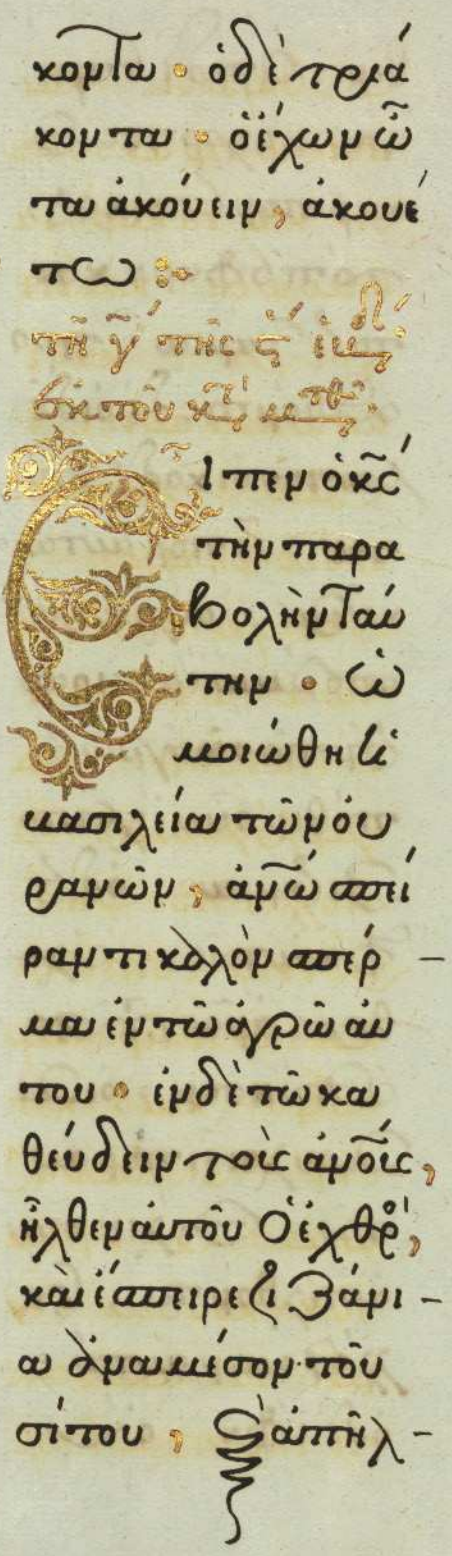 κοντα · ὁ δὲ τριά
κοντα · ὁ ἔχων ὦ
τα ἀκούειν, ἀκουέ
τω :·
τῆ γ̄ τῆς ς̄ ἑβδ
ἐκ τοῦ κ̄τ̄ μ̄τ̄θ̄
Εἶπεν ὁ κ̄ς
τὴν παρα
βολὴν ταύ
την · ὡ
μοιώθη ἡ
βασιλεία τῶν οὐ
ρανῶν, ἀνῶ σπεί
ραντι καλὸν σπέρ
μα ἐν τῶ ἀγρῶ αὐ
του · ἐν δὲ τῶ κα
θεύδειν τοὺς ἀνοῦς,
ἦλθεν αὐτοῦ ὁ ἐχθρ̊,
καὶ ἔσπειρε ζιζάνι
α ἀνα μέσον τοῦ
σίτου, καὶ ἀπῆλ